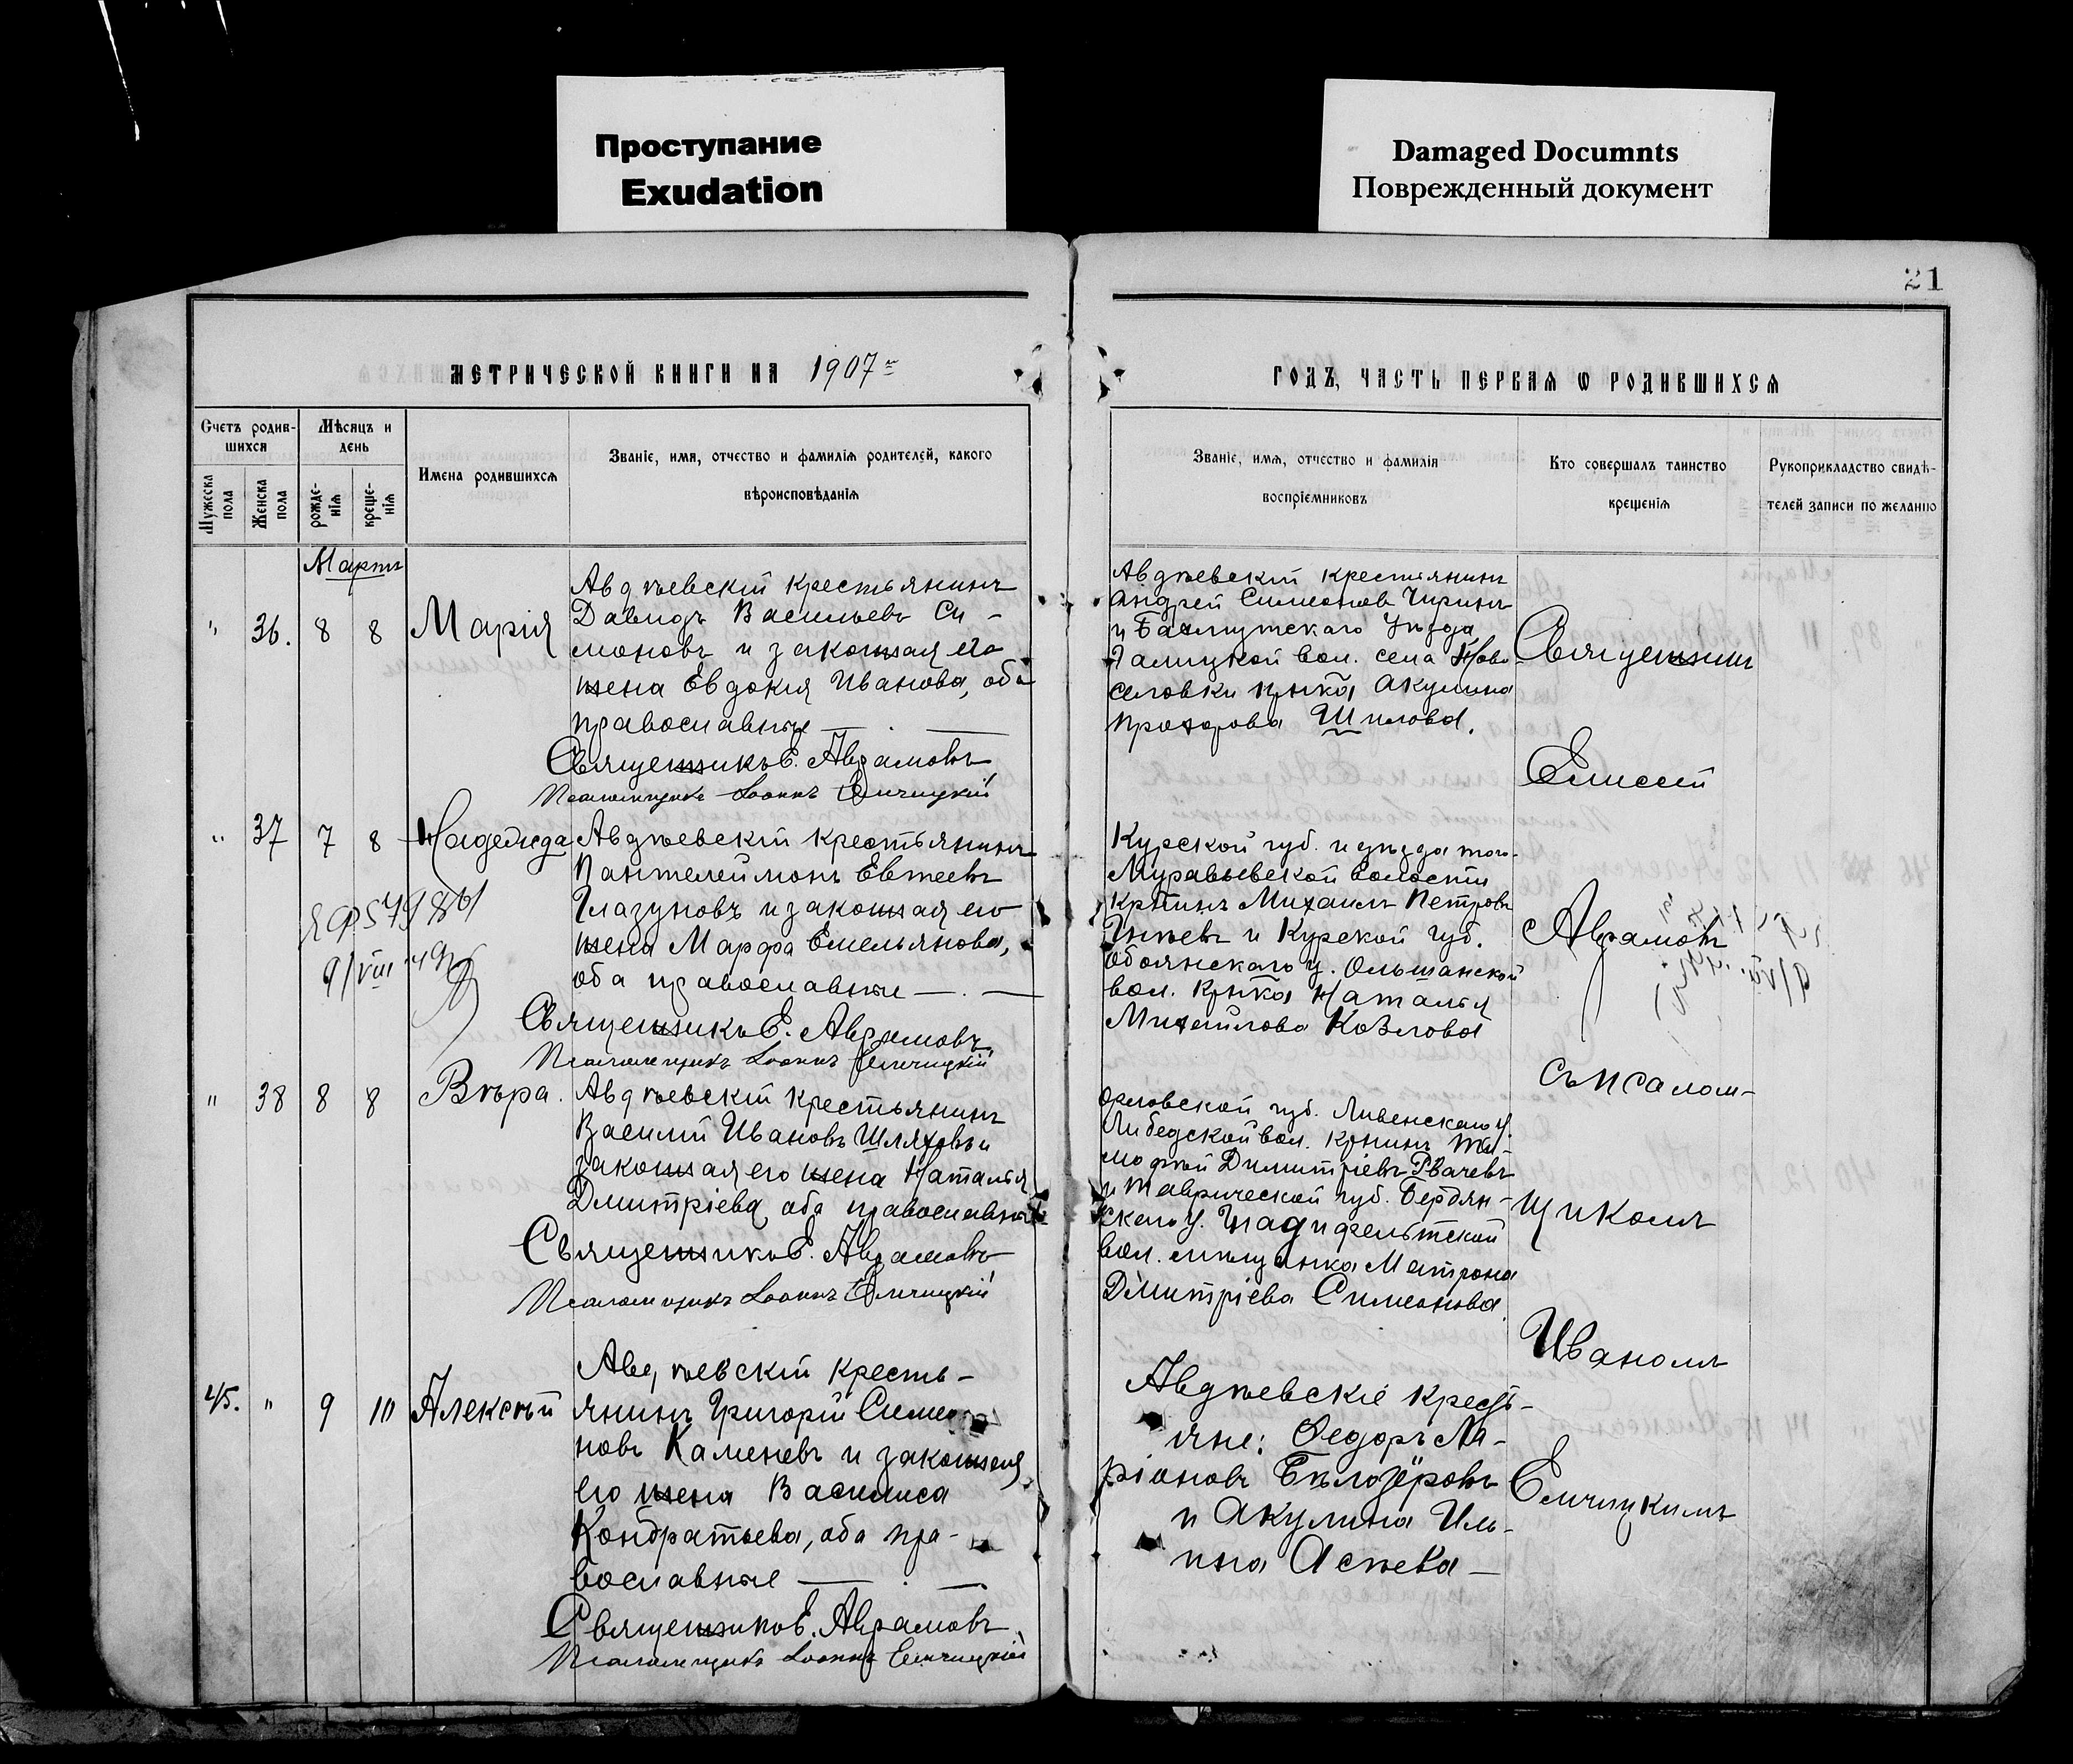 Проступание
Exudation
Damaged Documnts
Поврежденный документ
21
МЕТРИЧЕСКОЙ КНИГИ НА 1907
ГОДЪ, ЧАСТЬ ПЕРВАЯ Ѡ РОДИВШИХСЯ
Счетъ родив-
шихся
Мужеска пола
Женска пола
Мѣсяцъ и
день
рожде-
нія
креще-
нія
Имена родившихся
Званіе, имя, отчество и фамилія родителей, какого
вѣроисповѣданія
Званіе, имя, отчество и фамилія
воспріемниковъ
Кто совершалъ таинство
крещенія
Рукоприкладство свидѣ-
телей записи по желанію
Мартъ
" 36. 8 8 Марія
Авдѣевскій крестьянинъ
Давидъ Васильевъ Си-
моновъ и законная его
жена Евдокія Иванова, оба
православные
Священникъ Е. Авра́мовъ
Псаломщикъ Іоаннъ Елчицкій
Авдѣевскій крестьянинъ
Андрей Симеоновъ Чиринъ
и Бахмутскаго Уѣзда
Галицкой вол. села Ново-
селовки кр-нка Акулина
Прохорова Шилова.
" 37 7 8 Надежда
Авдѣевскій крестьянинъ
Пантелеймонъ Евтеевъ
Глазуновъ и законная его
жена Марфа Емельянова,
оба православные
Священникъ Е. Аврамовъ
Псаломщикъ Іоаннъ Елчицкій
9/VIII
Курской губ. и уѣзда того-
Муравьевской волости
кр-нинъ Михаилъ Петровъ
и Курской губ.
Обоянскаго у. Ольшанской
вол. кр-нка Наталья
Михайлова Козлова
" 38 8 8 Вѣра.
Авдѣевскій крестьянинъ
Василій Ивановъ Шляховъ и
законная его жена Наталья
Дмитріева, оба православные
Священникъ Е. Аврамовъ
Псаломщикъ Іоаннъ Елчицкій
Орловской губ. Ливенскаго у.
вол. кр-нинъ Ти-
мофей Димитріевъ
и Таврической губ. Бердян-
скаго у.
вол. мѣщанка Матрона
Димитріева Симонова.
45. " 9 10 Алексѣй
Авдѣевскій кресть-
янинъ Григорій Симео-
новъ Каменевъ и законная
его жена Василиса
Кондратьева, оба пра-
вославные
Священникъ Е. Аврамовъ
Псаломщикъ Іоаннъ Елчицкій
Авдѣевскіе кресть-
яне: Ѳедоръ Ла-
ріоновъ Бѣлозёровъ
и Акулина Иль-
ина
Священникъ
Елисей
Аврамовъ
съ псалом-
щикомъ
Иваномъ
Елчицкимъ